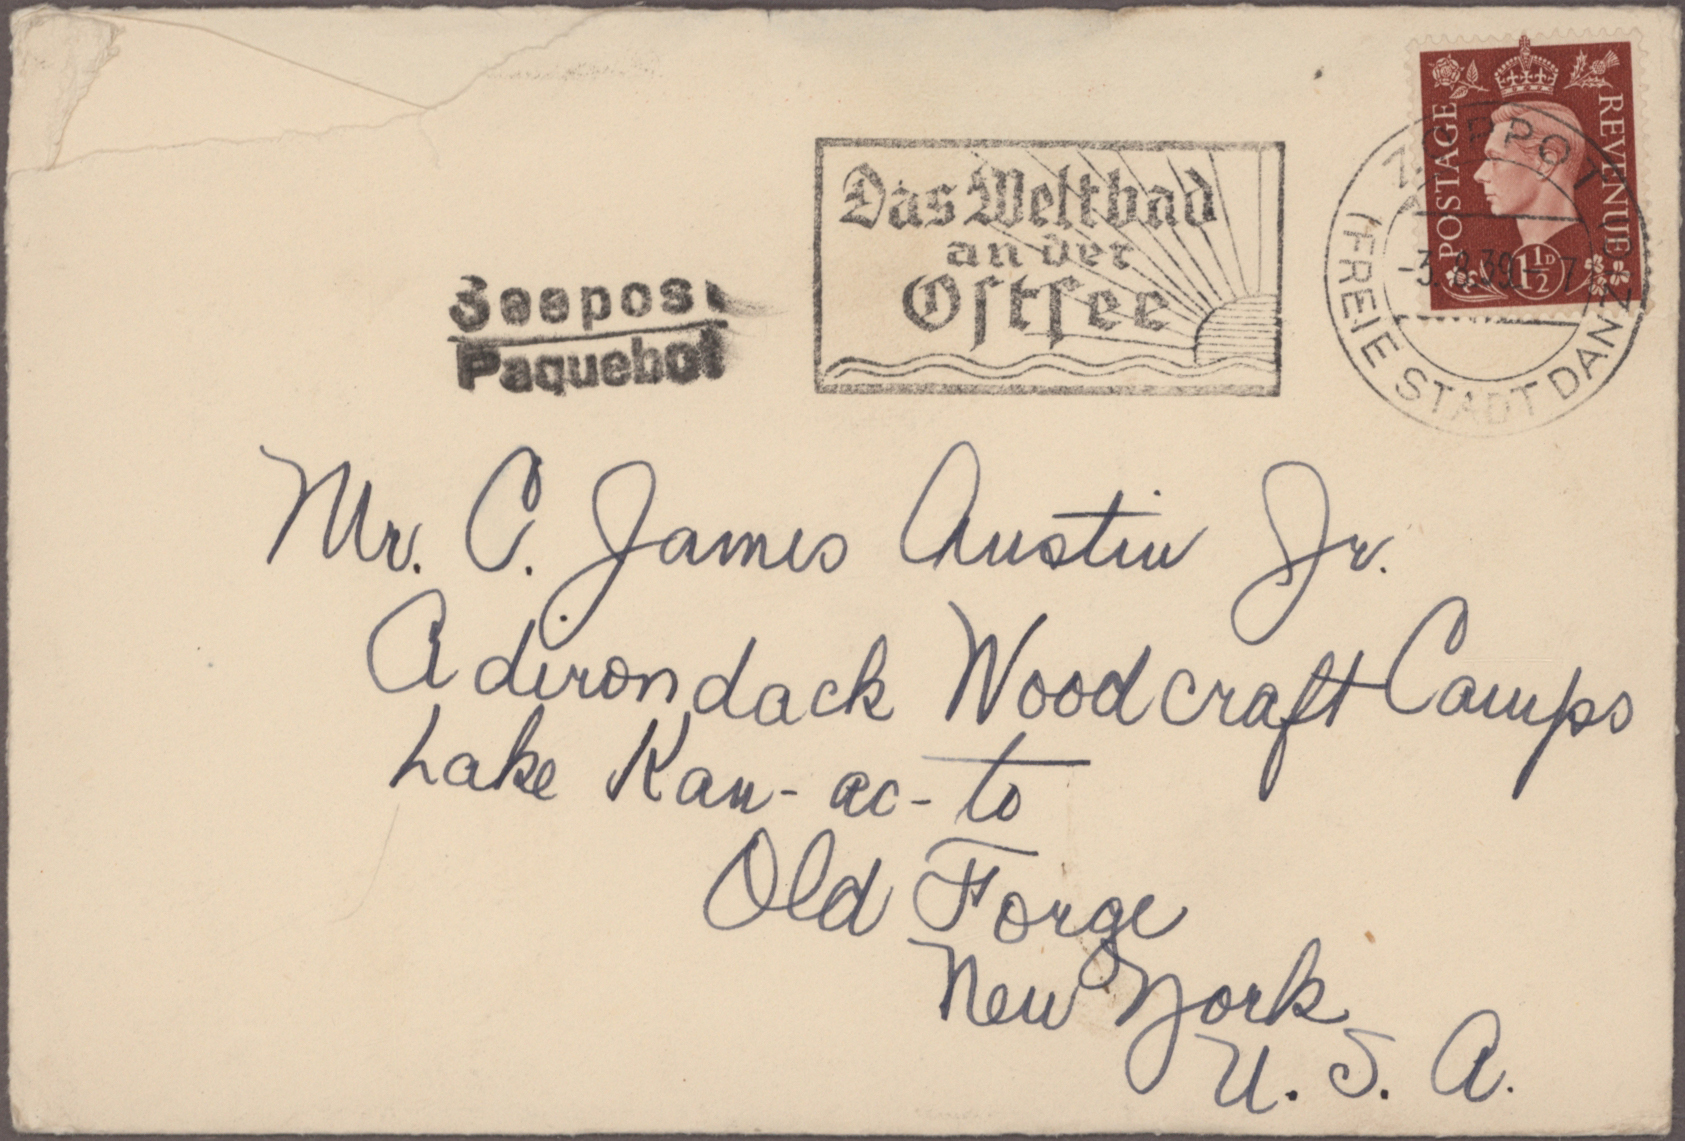 POSTAGE
REVENUE
1 1/2 D
ZOPPOT
-3.8.39.-7
(FREIE STADT DANZIG)
Das Weltbad
an der
Ostsee
Seepost
Paquebot
Mr. C. James Austin Jr.
Adirondack Woodcraft Camps
Lake Kan-ac-to
Old Forge
New York
U.S.A.